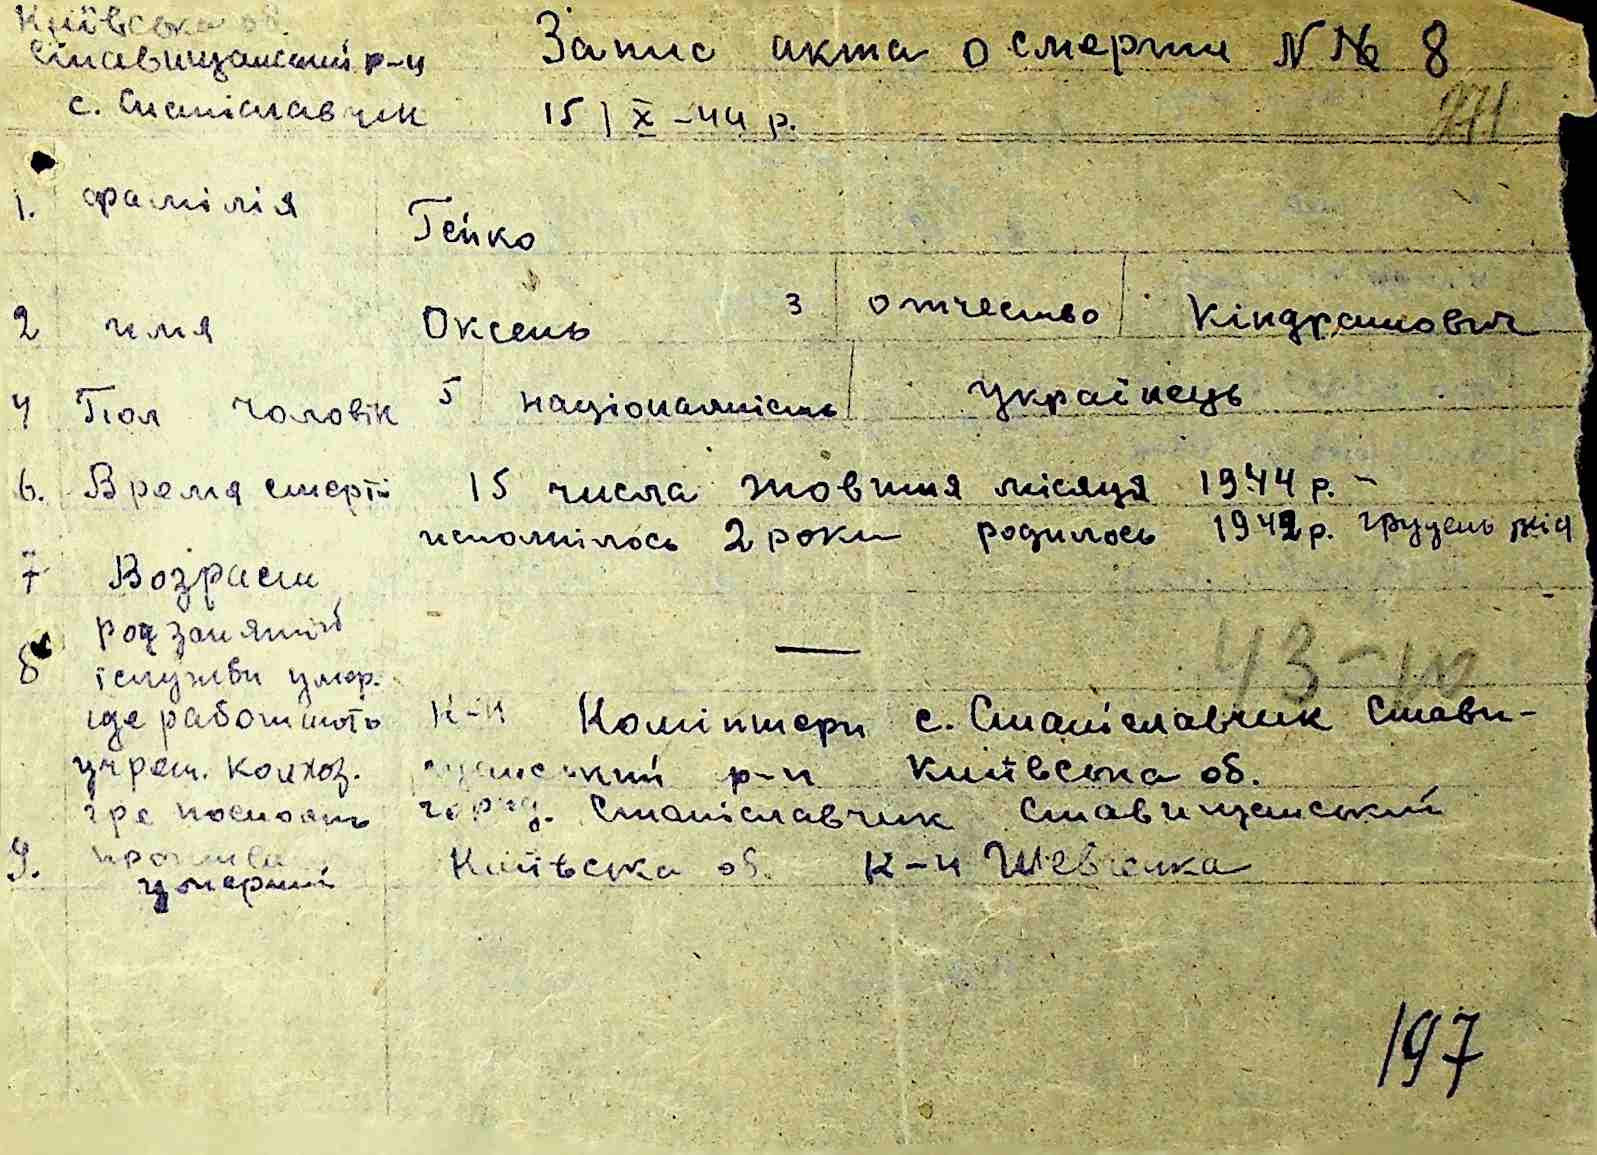 Київська об.
Ставищанський р-н Запис акта о смерти N № 8
с. Станіславчик 15 | X -44 р. 271
1. фамілія Гейко
2 имя Оксень 3 отчество Кіндратович
4 Пол чоловік 5 національність українець
6. Время смерті 15 числа жовтня місяця 1944 р. -
исполнілось 2 роки родилось 1942 р. грудень
7 Возраст
8 род заняттів —
і служби умер. 43-10
где работають к-п Комінтерн с. Станіславчик Стави-
учреж. колхоз. щанський р-н Київська об.
где посто
9. умерший Київська об. к-п Шевченка
город. Станіславчик Ставищанський
197